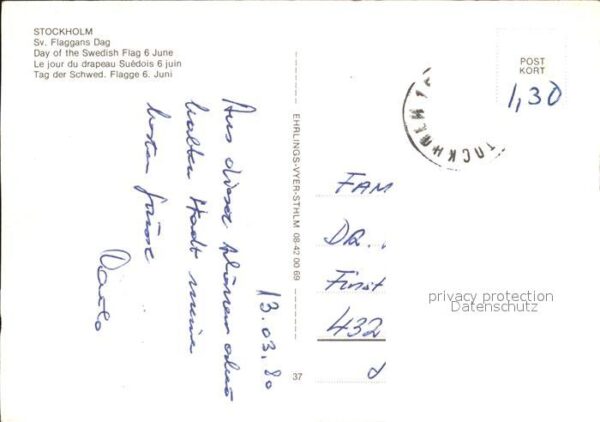 STOCKHOLM
Sv. Flaggans Dag
Day of the Swedish Flag 6 June
Le jour du drapeau Suédois 6 juin
Tag der Schwed. Flagge 6. Juni
POST
KORT
1,30
STOCKHOLM
EHRLINGS-VYER-STHLM 08-42 00 69
37
13.03.80
Aus dieser schönen aber
kalten Stadt meine
besten Grüsse
FAM
DR..
First
432
d
privacy protection
Datenschutz